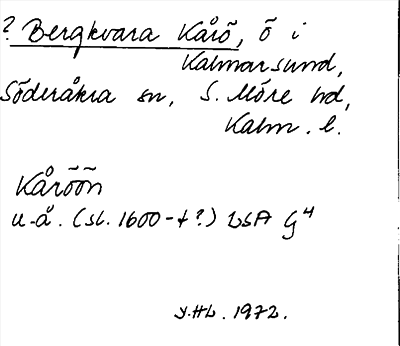 ? Bergkvara Kårö, ö i
Kalmarsund,
Söderåkra sn, S. Möre hd,
Kalm. l.
Kåröön
u.å. (sl. 1600-t?) LSA G4
Y.HL. 1972.